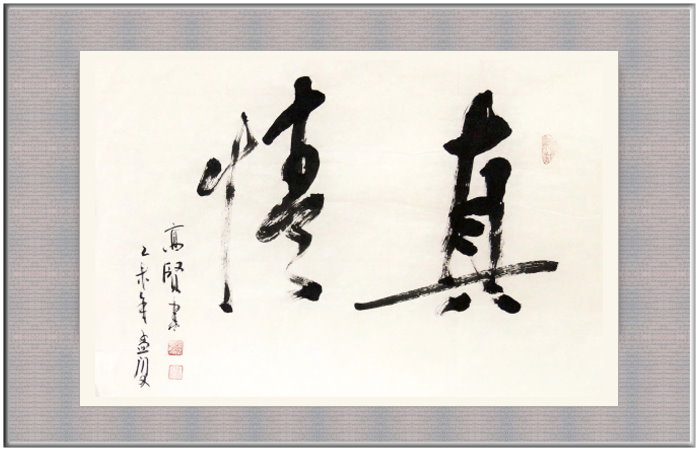 真情
高贤書
乙未年孟夏